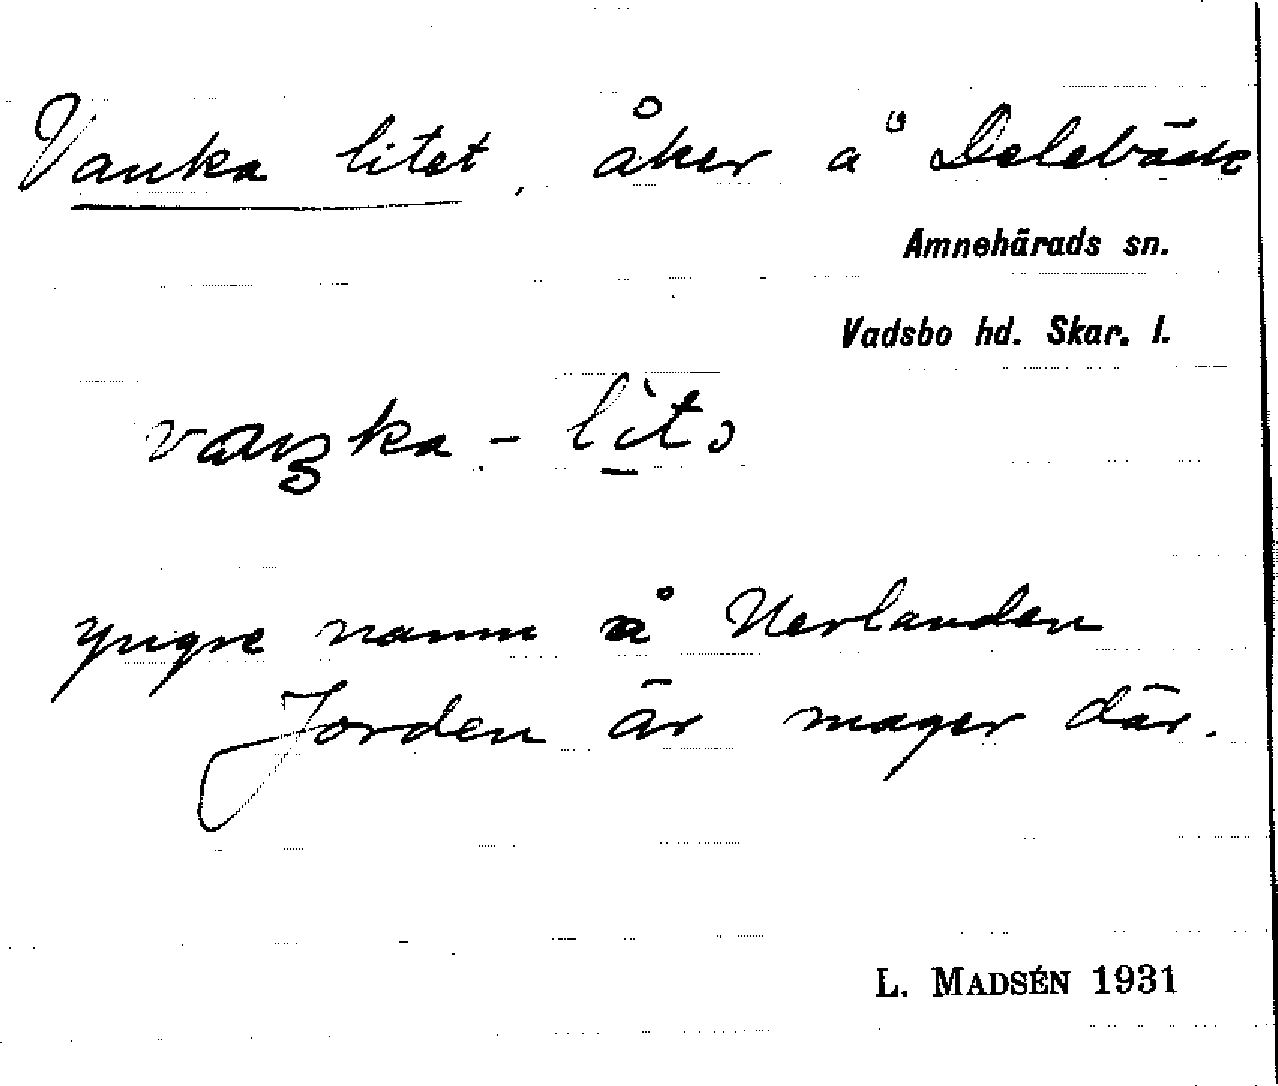 Vanka litet, åker å Delebäck
Amnehärads sn.
Vadsbo hd. Skar. l.
yngre namn å Nerlanden
Jorden är mager där.
L. MADSÉN 1931